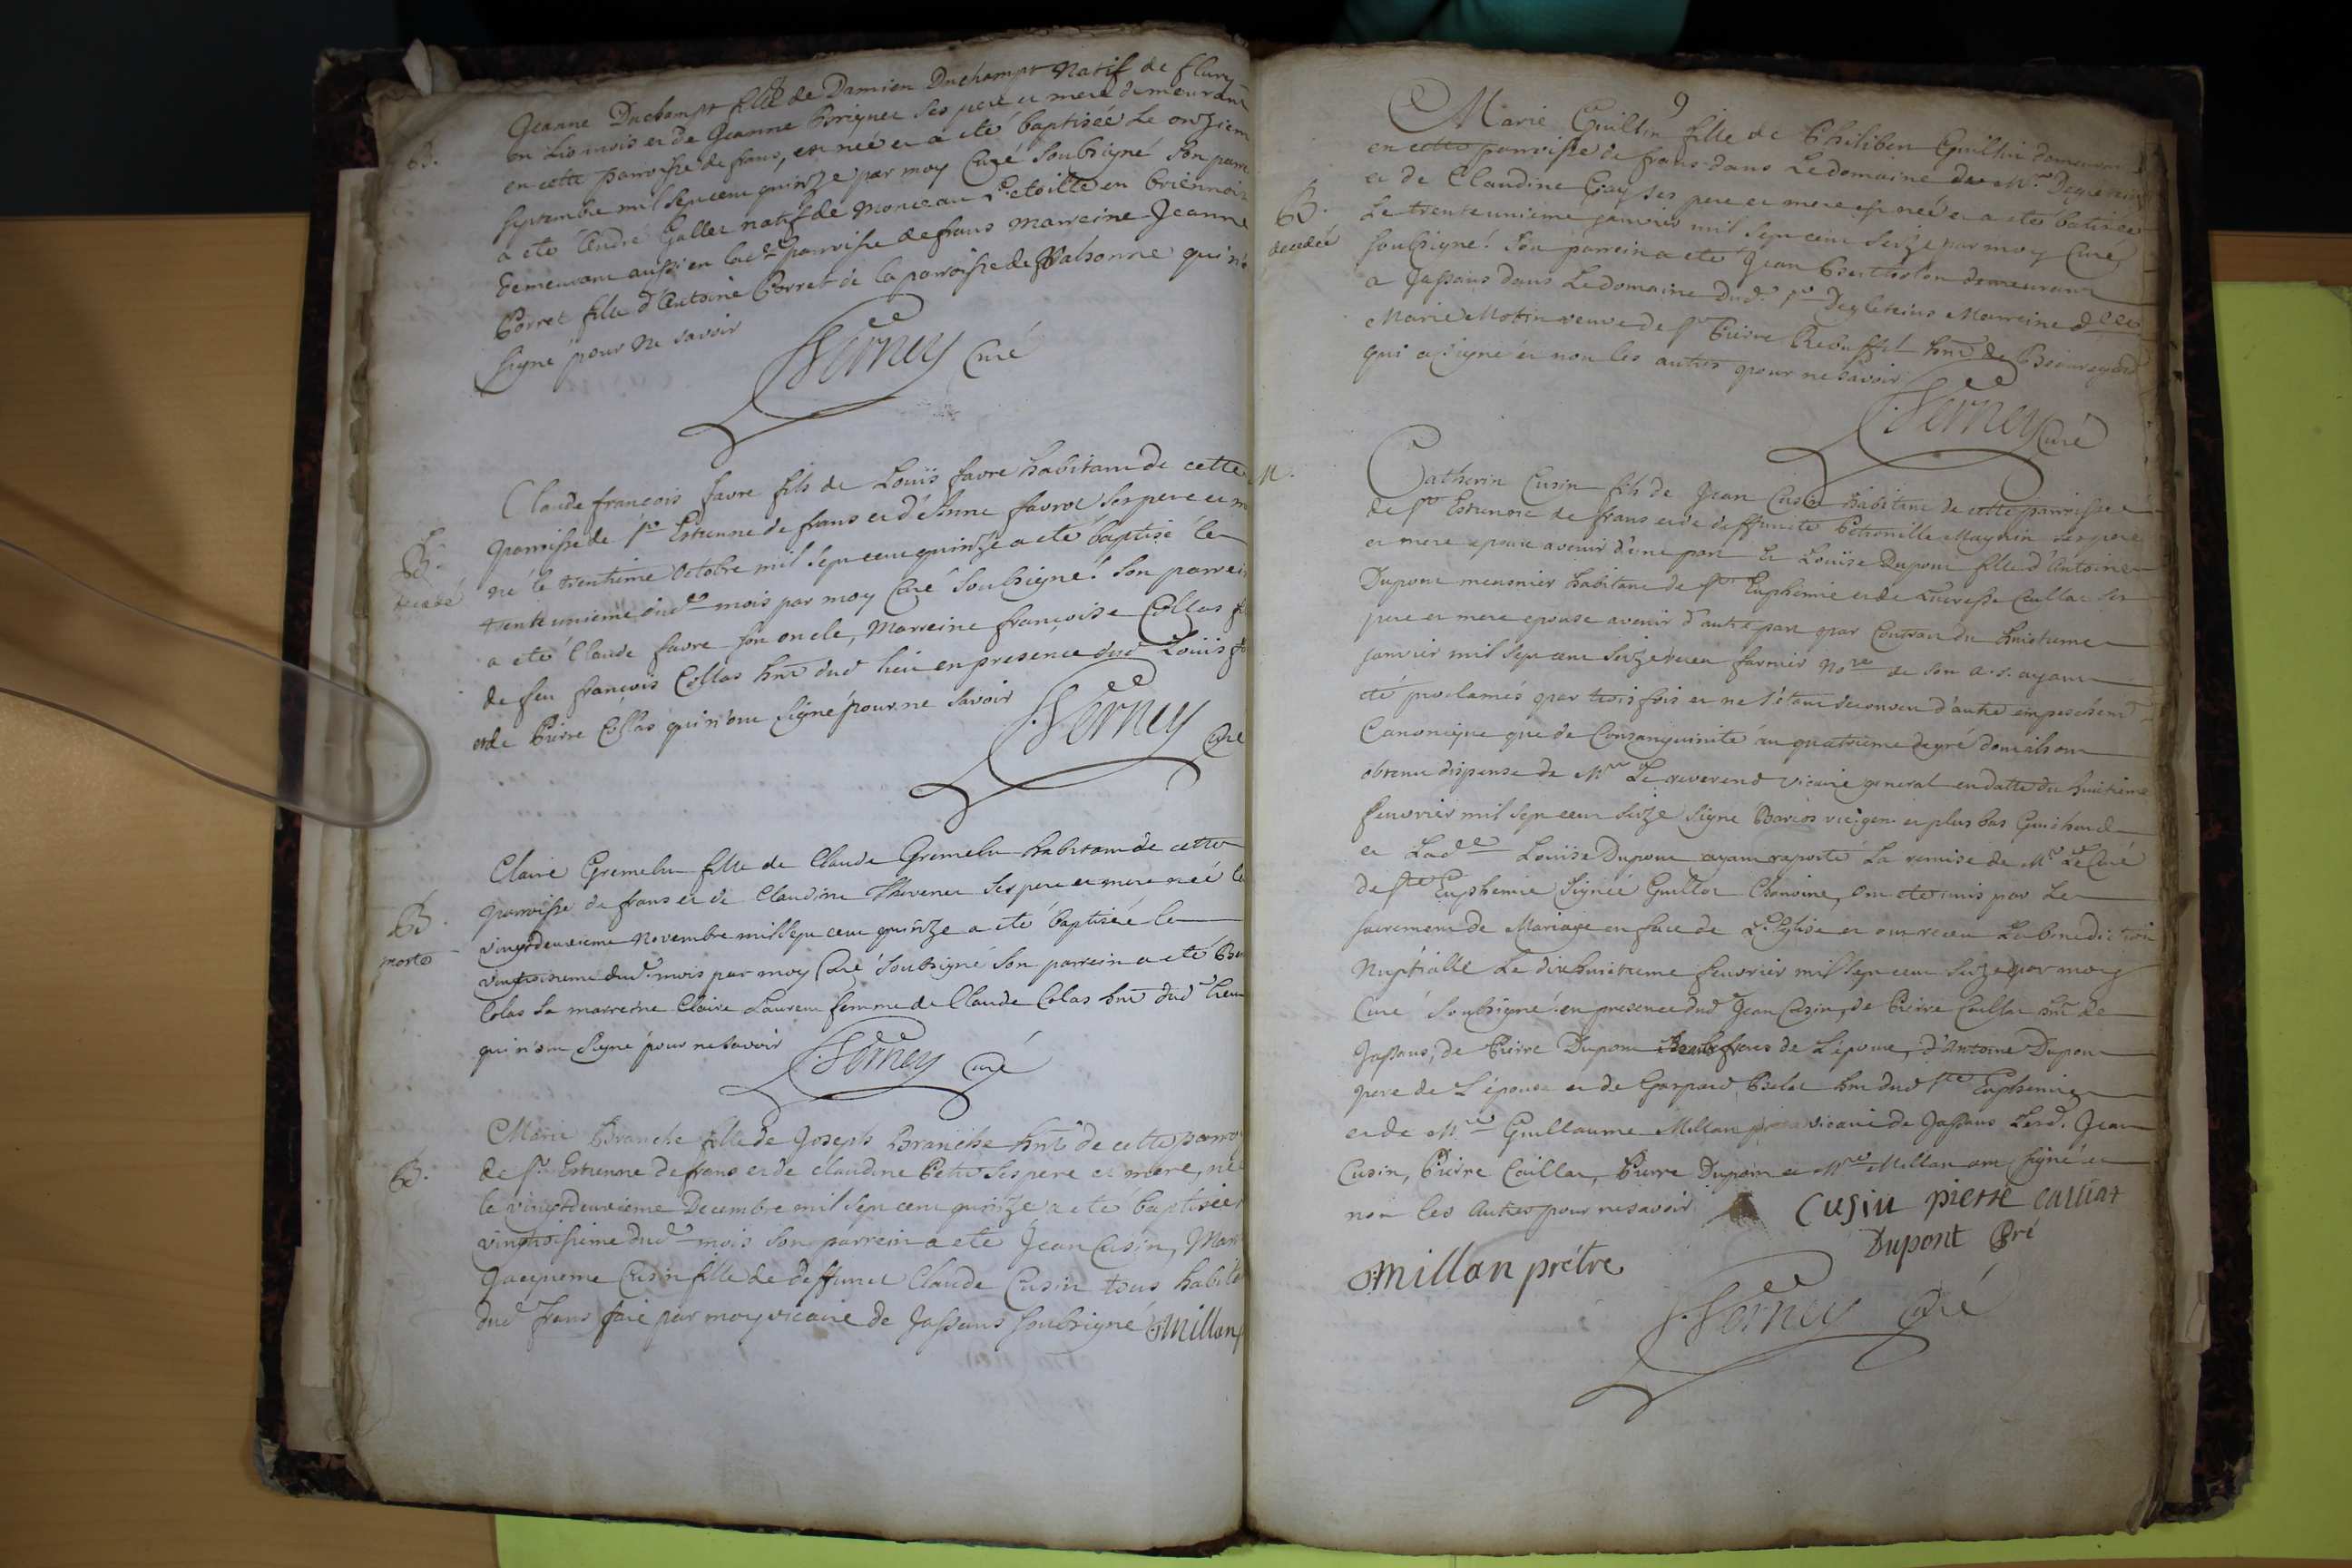 B.
Jeanne Duchampt fille de Damien Duchampt natif de flury
en Lionnois et de Jeanne Brignet ses pere et mere demeurant
en cette parroisse de frans, est née et a eté baptisée le onzieme
septembre mil sept cent quinze par moy Curé soubsigné son parrein
a eté André Gallet natif de Monceau L'etoille en briennois
demeurant aussi en lad.e parroisse de frans marreine Jeanne
Corret fille d'Antoine Corret de la parroisse de Valsonne qui n'a
signé pour ne savoir
J. Verney Curé
B.
decedé
Claude françois favre fils de Louïs favre habitant de cette
parroisse de st Estienne de frans et d'Anne favrot ses pere et me
né le trentieme Octobre mil sept cent quinze a eté baptisé le
trente unieme dud. mois par moy Curé soubsigné son parrein
a eté Claude favre son oncle, Marreine françoise Collas f
de feu françois Collas hnt dud lieu en presence dud Louïs fa
et de Pierre Collas qui n'ont signé pour ne savoir
J. Verney Curé
B.
morte
Claire Gremelu fille de Claude Gremelu habitant de cette
parroisse de frans et de Claudine Thevenet ses pere et mere née le
vingtdeuxieme Novembre mil sept cent quinze a eté baptisée le
vingtroisieme dud. mois par moy Curé soubsigné son parrein a eté
Colas sa marreine Claire Laurent femme de Claude Colas hnt dud lieu
qui n'ont signé pour ne savoir
J. Verney Curé
B.
Marie Branche fille de Joseph Branche hnt de cette parroi
de st Estienne de frans et de claudine Petit ses pere et mere, née
le vingtdeuxieme Decembre mil sept cent quinze a eté baptisée
vingtroisieme dud. mois son parrein a eté Jean Cusin, Marr
Jacqueme Cusin fille de deffunct Claude Cusin tous habita
dud frans fait par moy vicaire de Jassans soubsigné Millan
9
B.
decedée
Marie Guillin fille de Philibert Guillin demeurant
en cette parroisse de frans dans Le domaine de Mr. Degleteins
et de Claudine Gay ses pere et mere est née et a eté batisée
Le trente unieme janvier mil sept cent seize par moy Curé
soubsigné. son parrein a eté Jean Bertholon demeurant
a Jassans dans Le domaine dud. sr Degleteins Marreine Dlle
Marie Motin veuve de sr Pierre Rebuffel hnt de Beauregard
qui a signé et non les autres pour ne savoir
J. Verney Curé
M.
Catherin Cusin fils de Jean Cusin habitant de cette parroisse
de st Estienne de frans et de deffuncte Petronille Maynin ses pere
et mere epoux avenir d'une part Et Louïse Dupont fille d'Antoine
Dupont meusnier habitant de ste Euphemie et de Lucresse Caillat ses
pere et mere epouse avenir d'autre part par Contrat du huictieme
janvier mil sept cent seize receu farnier Nore de son a. s. ayant
eté proclamés par trois fois et ne s'étant decouvert d'autre empeschemt
Canonique que de Consanguinité au quatrieme degré dont ils ont
obtenu dispense de Mr Le reverend vicaire general en datte du huitieme
feuvrier mil sept cent seize signé Barios vic. gen. et plus bas Guichard
et Lade Louïse Dupont ayant raporté La remise de Mr Le Curé
de ste Euphemie signée Guillot Chanoine, ont eté unis par Le
sacrement de Mariage en face de L'Eglise et ont receu La benediction
Nuptialle Le dix huictieme feuvrier mil sept cent seize par moy
Curé soubsigné en presence dud Jean Cusin, de Pierre Caillat hnt de
Jassans, de Pierre Dupont frere de L'épouse, d'Antoine Dupont
pere de L'épouse et de Gaspard Belet hnt dud ste Euphemie
et de Mre Guillaume Millan vicaire de Jassans Lesd. Jean
Cusin, Pierre Caillat, Pierre Dupont et Mre Millan ont signé et
non les Autres pour ne savoir.
Cusin pierre calliat
Millan prêtre
Dupont
J. Verney Curé